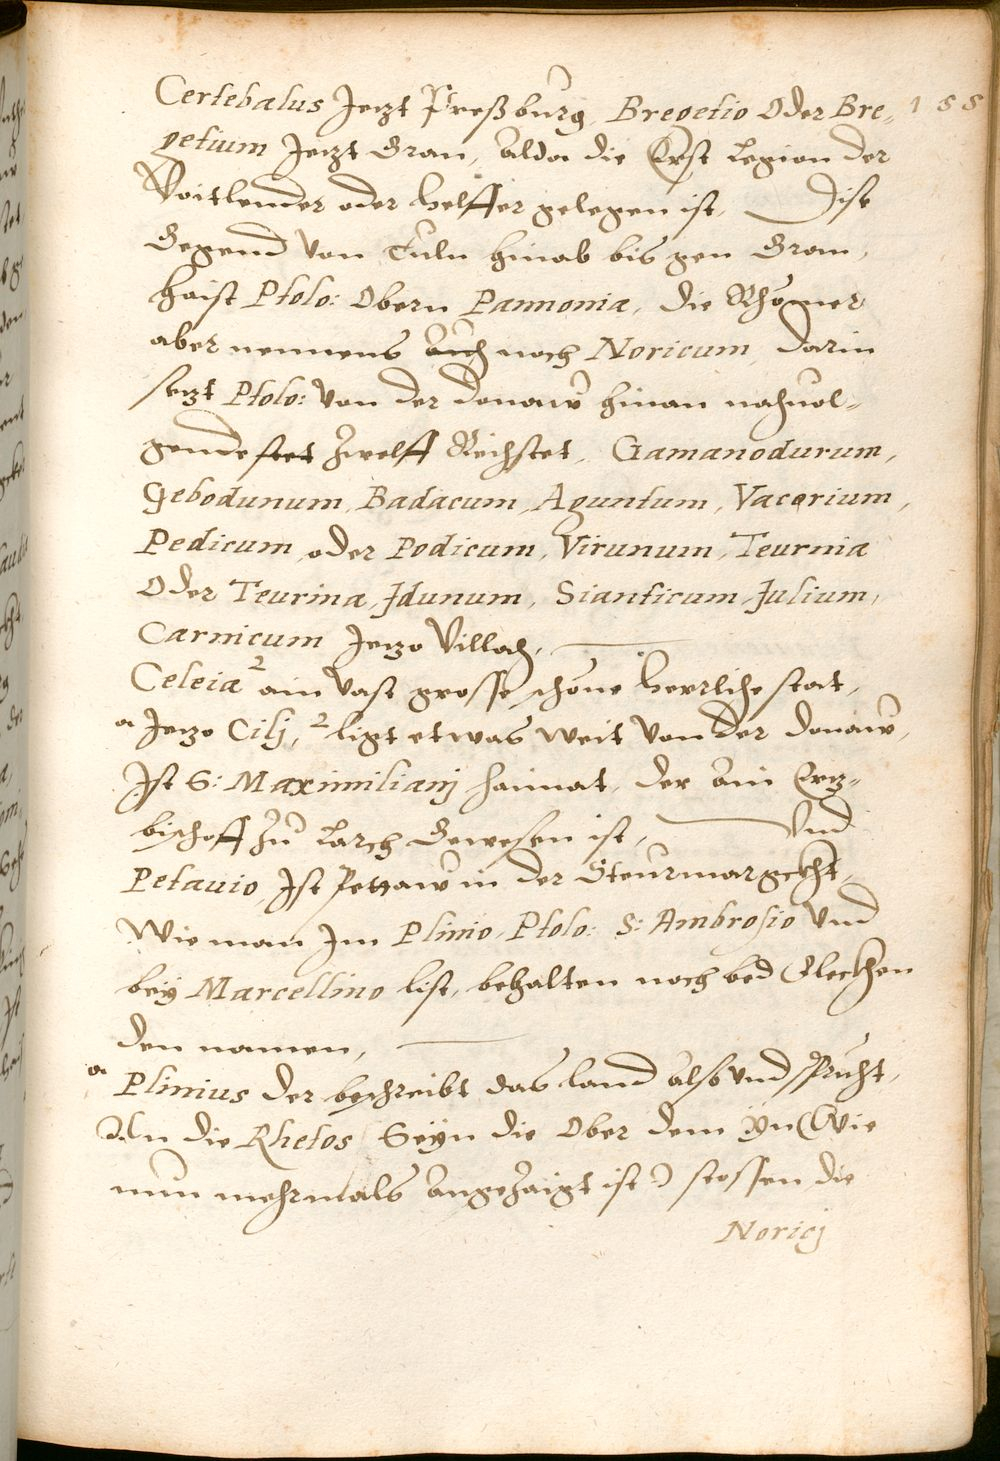 Certebalus Jetzt Preßburg, Bregetio Oder Bre- 155
getium Jetzt Gran, alda die Erst Legion der
Voitlender oder helffer gelegen ist, Dise
Gegend von Tuln hinab bis gen Gran,
haist Ptolo: Obern Pannonia, die Rhömer
aber nennens auch noch Noricum, darin
setzt Ptolo: von der donaw hinan nachuol-
gende stet zwelff Reichstet, Gamanodurum,
Gebodunum, Badacum, Aguntum, Vacorium,
Pedicum, oder Podicum, Virunum, Teurnia
Oder Teurina, Jdunum, Sianticum, Julium,
Carnicum Jetzo Villach,
Celeia 2 ain vast grosse schöne herrliche stat,
a Jetzo Cilj, 2 ligt etwas weit von der donaw,
Jst S: Maximilianj haimat, der ain Ertz-
bischoff zu Larch Gewesen ist, Vnd
Petauio, Jst Pettaw in der Steurmargckht,
Wie man Jm Plinio, Ptolo: S: Ambrosio vnd
bey Marcellino list, behalten noch bed Fleckhen
den namen,
a Plinius der beschreibt das land also vnd spricht,
An die Rhetos (Seyn die Ober dem yn (Wie
nun mehrmals angezaigt ist) stossen die
Noricj